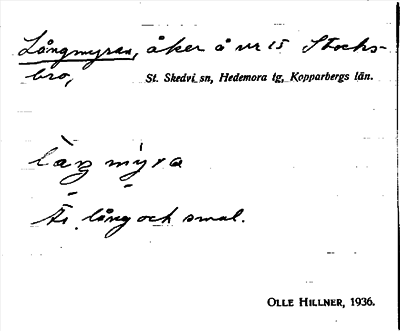 Långmyran, åker å nr 15 Stocks-
bro,
St. Skedvi sn, Hedemora tg, Kopparbergs län.
làŋ mỳra
Är lång och smal.
OLLE HILLNER, 1936.